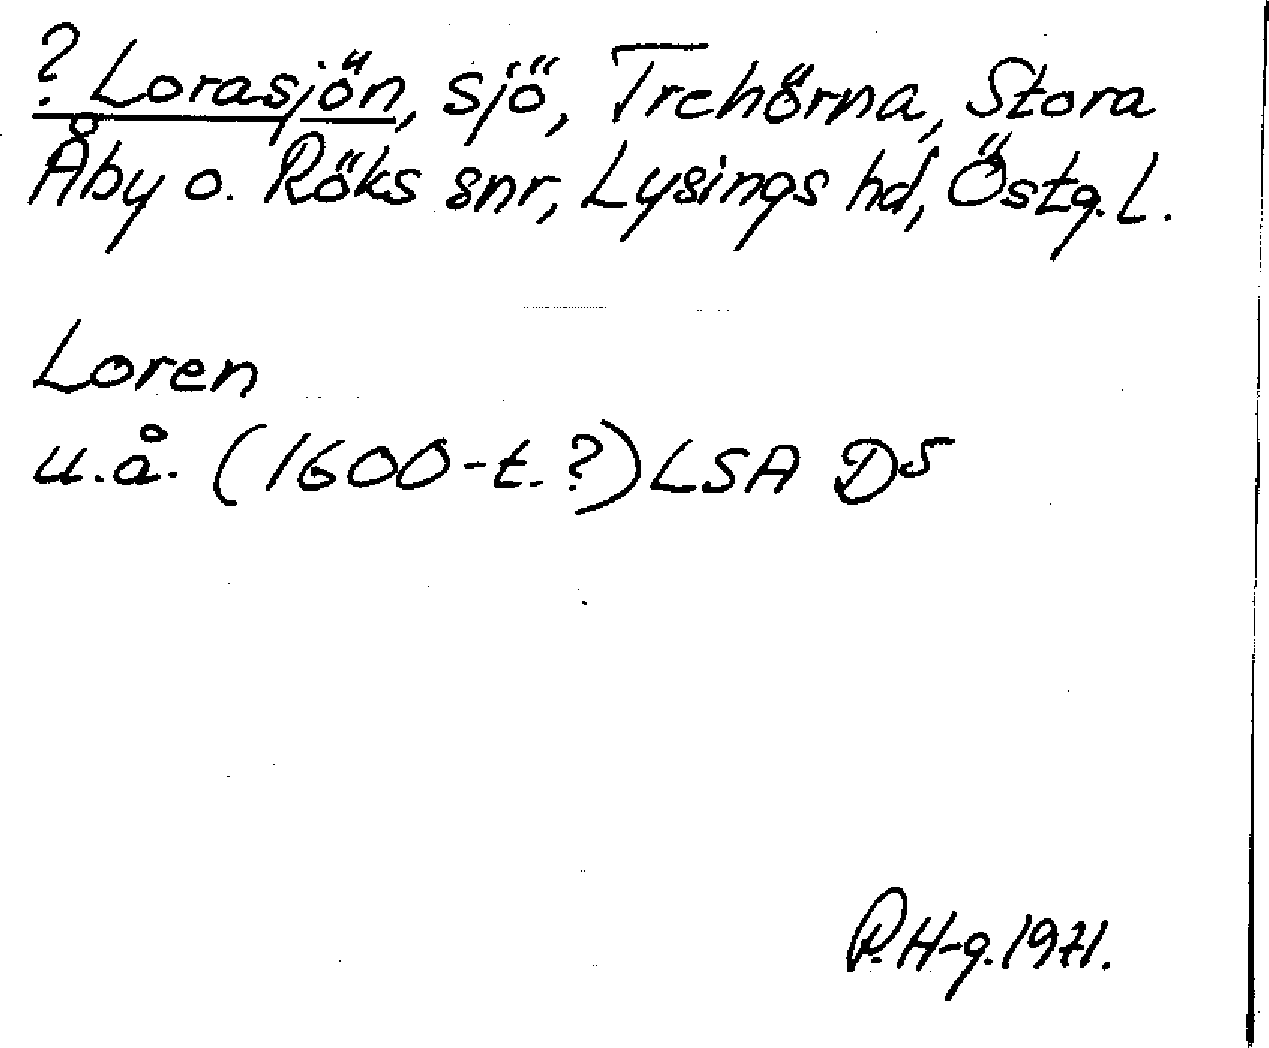 ? Lorasjön, sjö, Trehörna, Stora
Åby o. Röks snr, Lysings hd, Östg. l.
Loren
u.å. (1600-t.?) LSA D5
R.H-g. 1971.